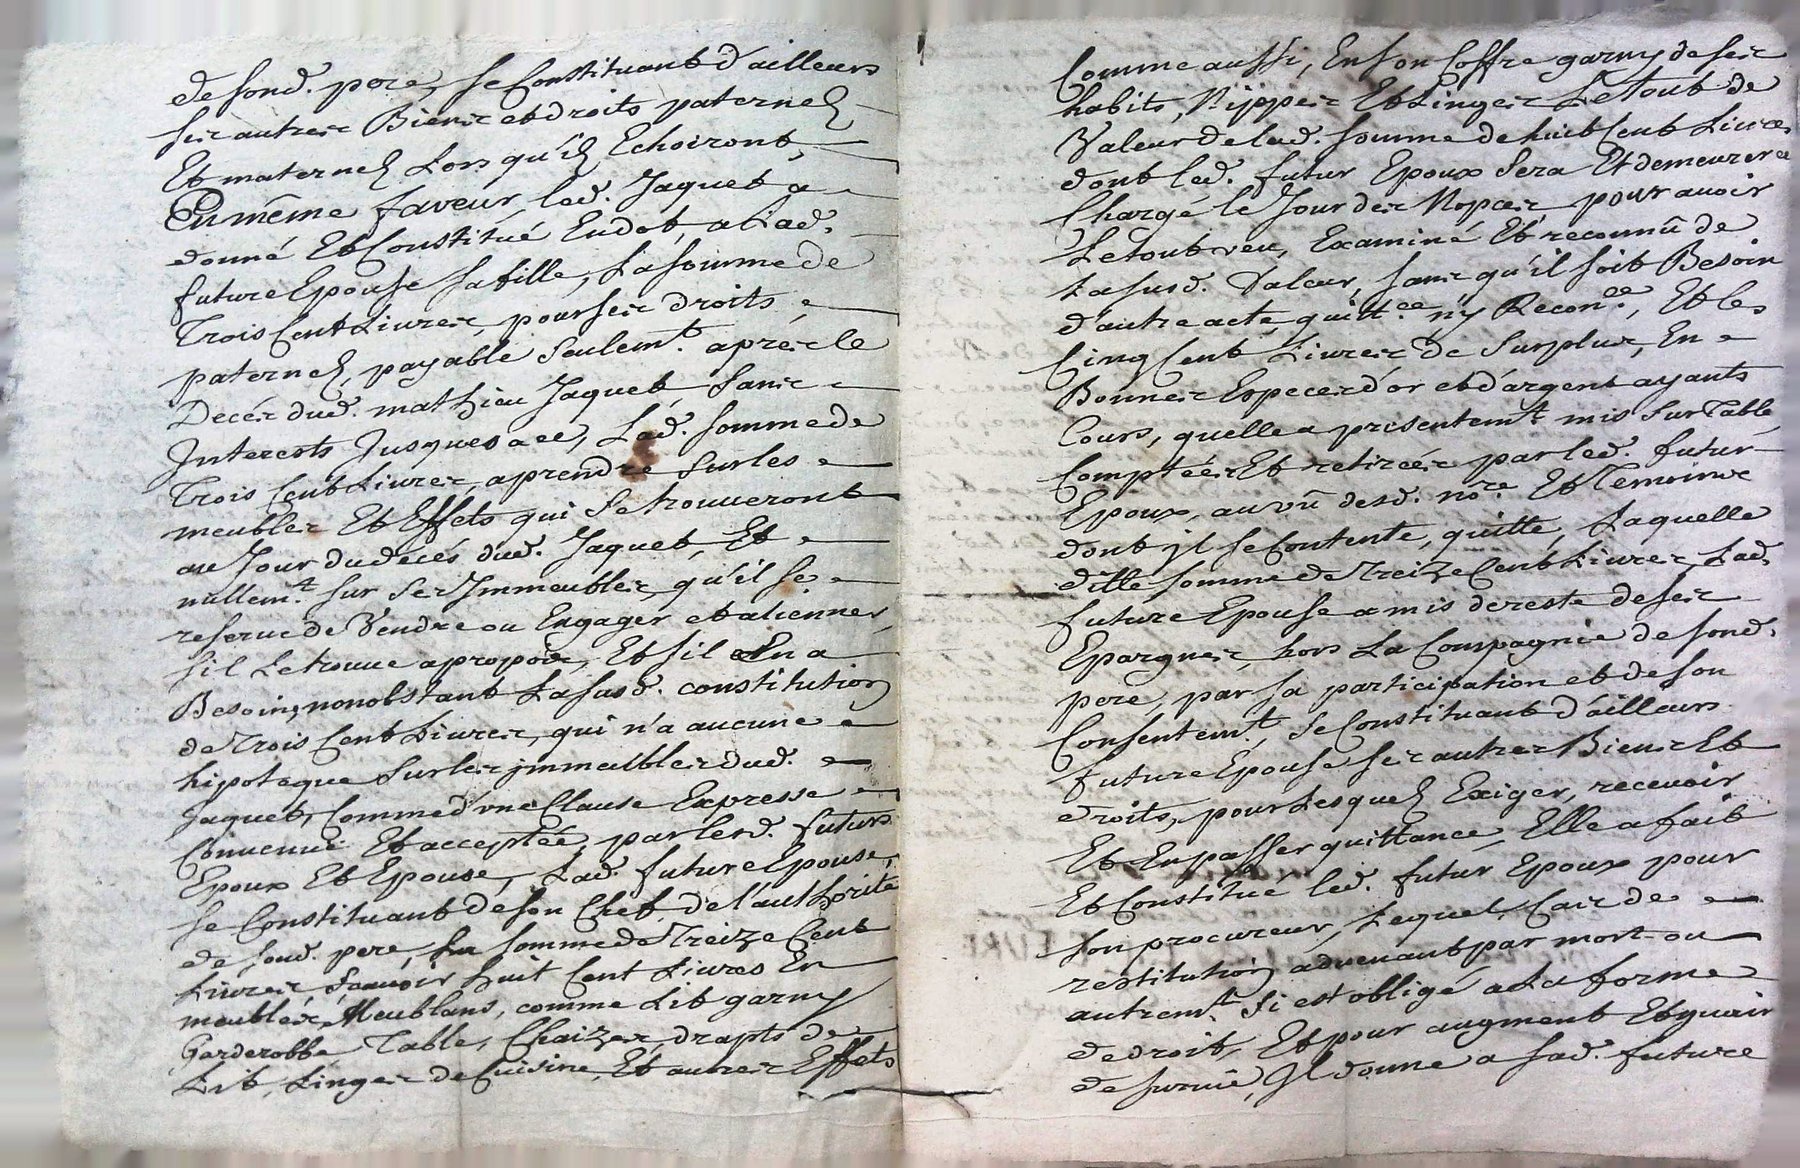 de sond. pere, se Constituant d'ailleurs
ses autres Biens et droits paternels
Et maternels Lors qu'ils Echoiront,
En même faveur, led. Jaquet a
donné Et Constitué Endot, a Lad.
future Epouse sa fille, La somme de
Trois Cent Livres, pour ses droits,
paternels, payable seulemt. aprés le
Decés dud. mathieu Jaquet, sans
Interests Jusques a ce, Lad. somme de
Trois Cent Livres, aprendre sur les
meubles Et Effets qui se trouveront
au Jour du decés dud. Jaquet, Et
nullemt. sur ses Immeubles, qu'il se
reserve de Vendre ou Engager et alienner,
sil Le trouve apropos, Et sil En a
Besoing, nonobstant La susd. constitution
de Trois Cent Livres, qui n'a aucune
hipoteque sur les immeubles dud.
Jaquet, Comme d'vne Clause Expresse
Convenue Et acceptée, par lesd. futurs
Epoux Et Epouse, Lad. future Epouse,
se Constituant de son Chef, de l'authorité
de sond. pere, La somme de Treize Cent
Livres sçauoir huit Cent Livres En
meubles, Meublans, comme Lit garny
Garderobbe Table, Chaizes, drapts de
Lit, Linges de Cuisine, Et autres Effets
Comme aussi, En son Coffre garny de ses
habits, Nippes Et Linges Le tout de
Valeur de lad. somme de huit Cent Livres
dont led. futur Epoux sera Et demeurera
Chargé le Jour des Nopces pour auoir
Le tout veu, Examiné Et reconnû de
La susd. Valeur, sans qu'il soit Besoin
d'autre acte, quittce. n'y Reconce., Et les
Cinq Cent Livres de surplus, En
Bonnes Especes d'or et d'argent ayants
Cours, quelle a presentemt. mis sur Table
Comptées Et retirées par led. futur
Epoux, au vû desd. nore. Et Temoins
dont il se Contente, quitte, Laquelle
ditte somme de Treize Cent Livres, Lad.
future Epouse a mis de reste de ses
Epargnes, hors La Compagnie de sond.
pere, par sa participation et de son
Consentemt., se Constituant d'ailleurs
future Epouse ses autres Biens Et
droits, pour Lesquels Exiger, recevoir
Et En passer quittance, Elle a fait
Et Constitue led. futur Epoux pour
son procureur, Lequel, Cas de
restitution advenant par mort ou
autremt. si est obligé a La forme
de droit, Et pour augment Et guain
de survie, Il donne a sad. future